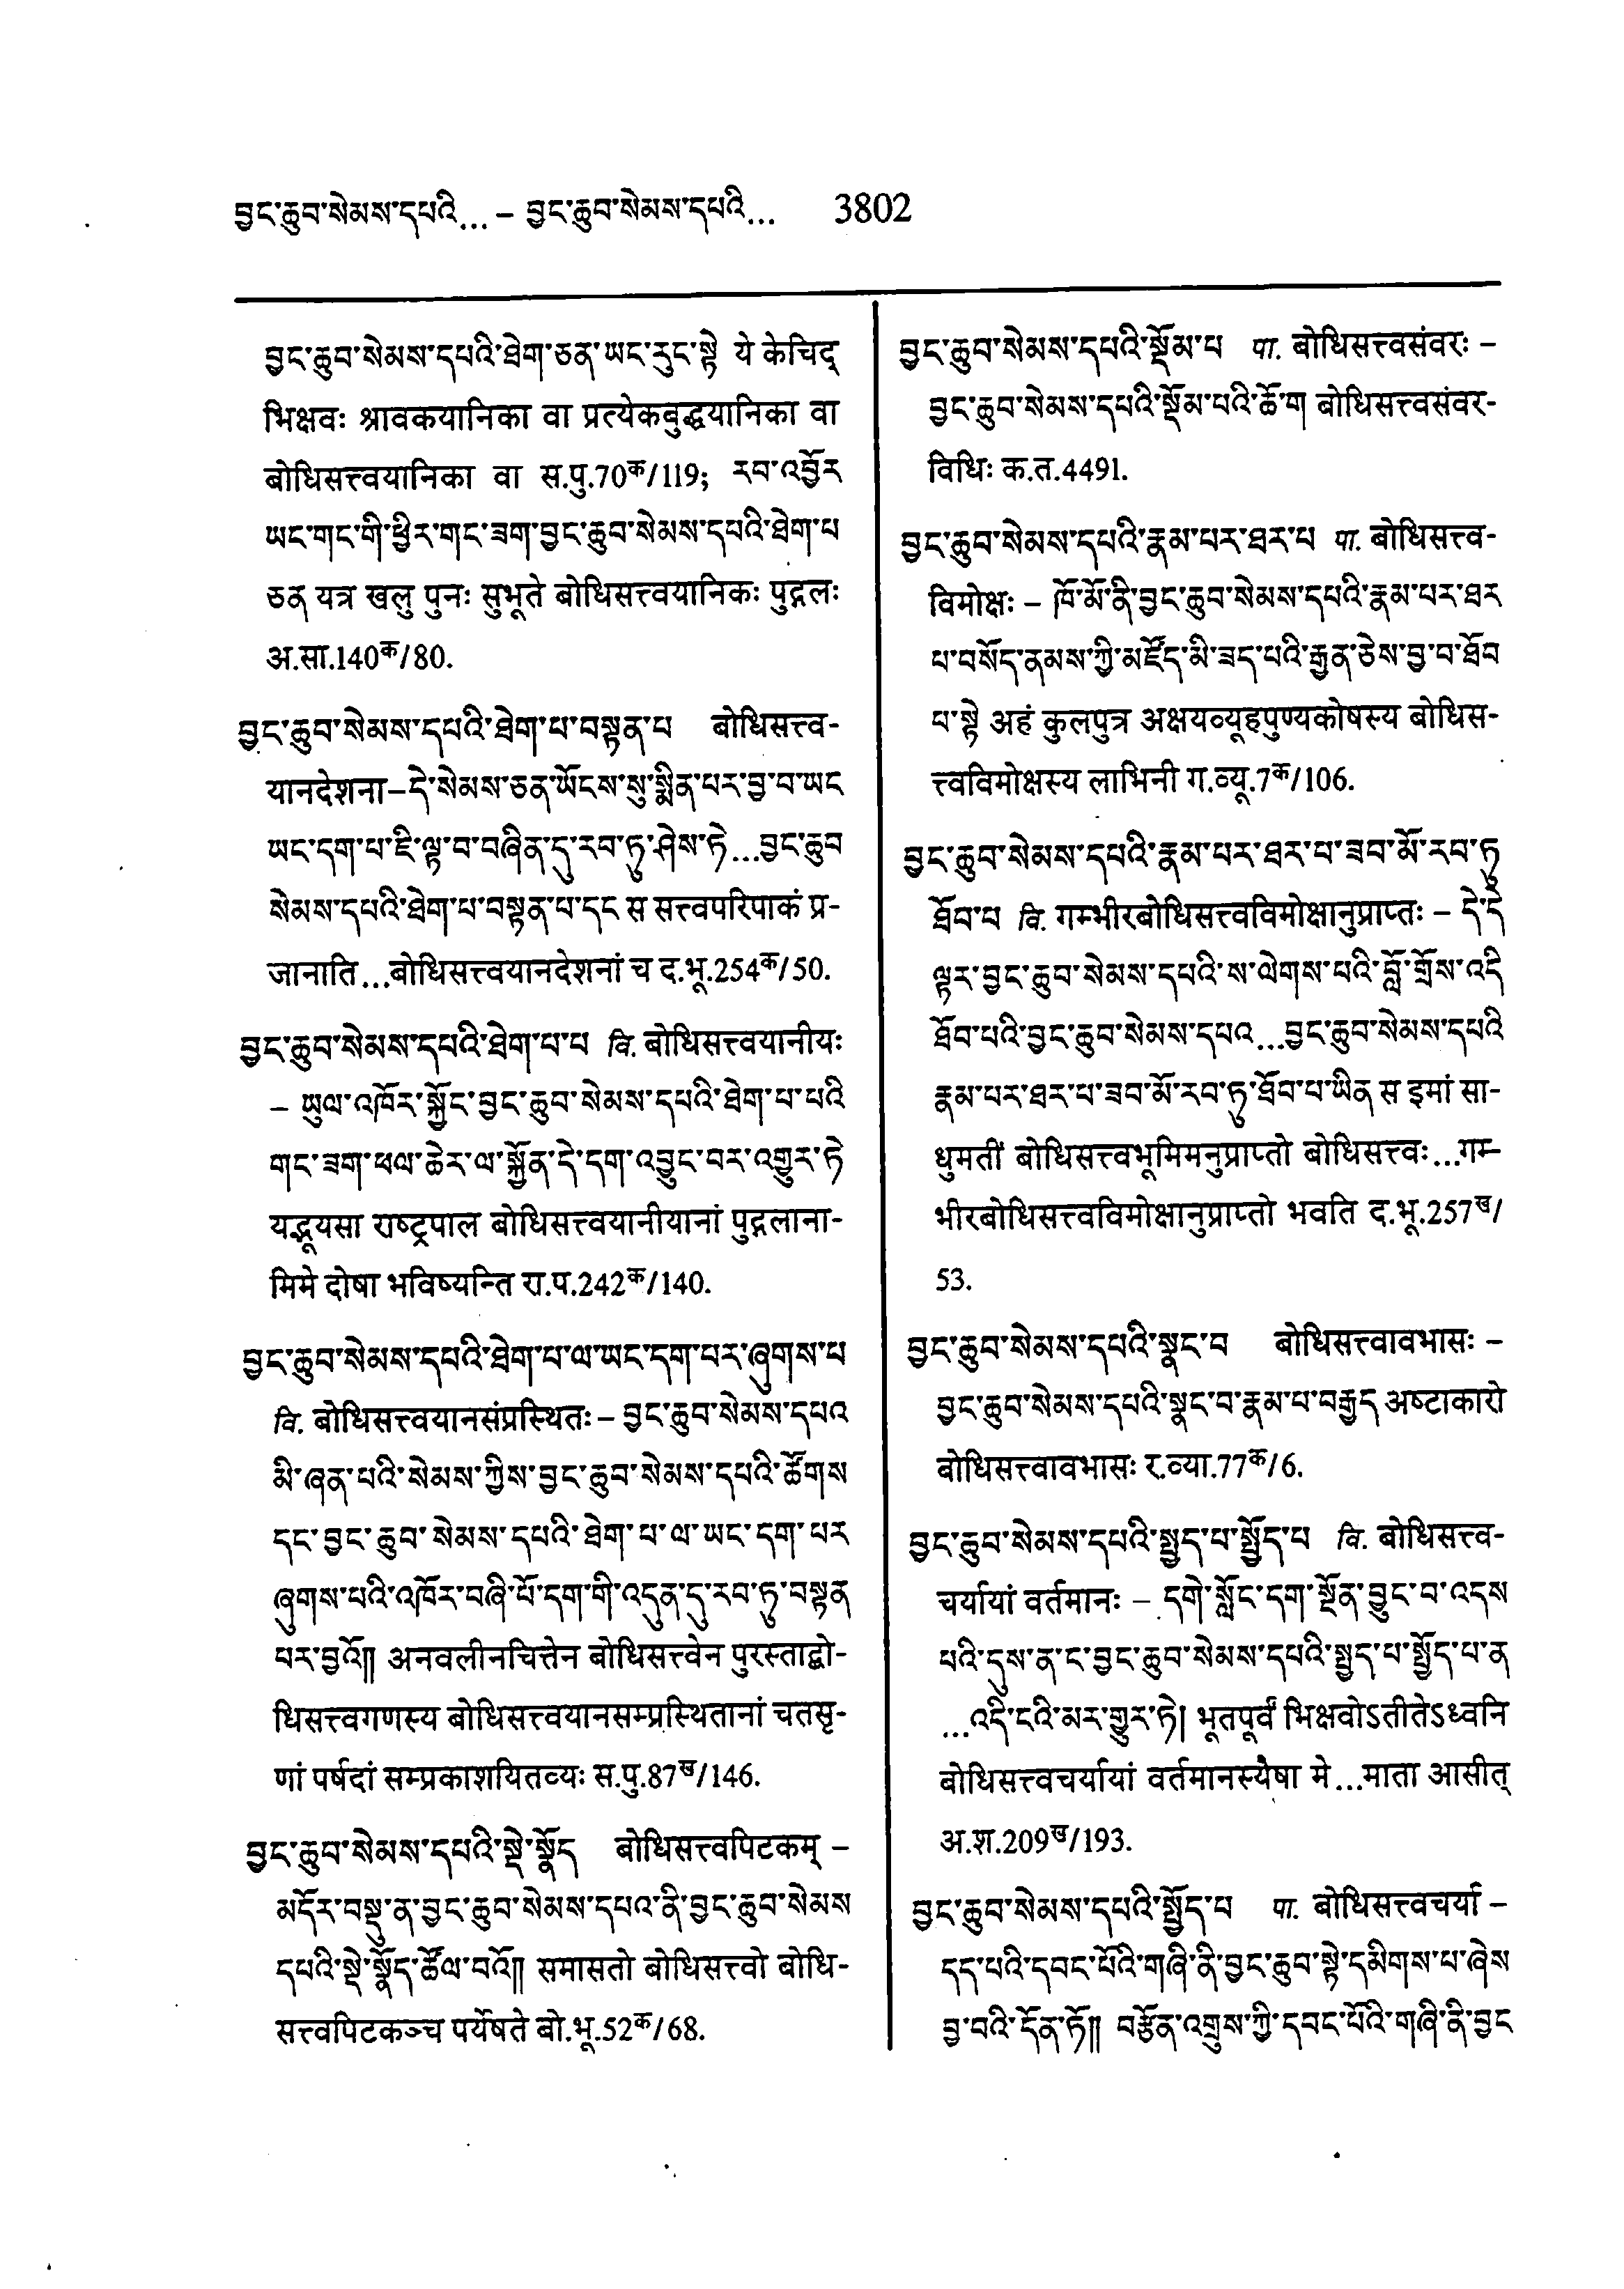 བྱང་ཆུབ་སེམས་དཔའི... – བྱང་ཆུབ་སེམས་དཔའི... 3802
བྱང་ཆུབ་སེམས་དཔའི་ཐེག་ཅན་ཡང་རུང་སྟེ ये केचिद्
भिक्षवः श्रावकयानिका वा प्रत्येकबुद्धयानिका वा
बोधिसत्त्वयानिका वा स.पु.70क/119; རབ་འབྱོར
ཡང་གང་གི་ཕྱིར་གང་ཟག་བྱང་ཆུབ་སེམས་དཔའི་ཐེག་པ
ཅན यत्र खलु पुनः सुभूते बोधिसत्त्वयानिकः पुद्गलः
अ.सा.140क/80.
བྱང་ཆུབ་སེམས་དཔའི་ཐེག་པ་བསྟན་པ बोधिसत्त्व-
यानदेशना–དེ་སེམས་ཅན་ཡོངས་སུ་སྨིན་པར་བྱ་བ་ཡང
ཡང་དག་པ་ཇི་ལྟ་བ་བཞིན་དུ་རབ་ཏུ་ཤེས་ཏེ...བྱང་ཆུབ
སེམས་དཔའི་ཐེག་པ་བསྟན་པ་དང स सत्त्वपरिपाकं प्र-
जानाति...बोधिसत्त्वयानदेशनां च द.भू.254क/50.
བྱང་ཆུབ་སེམས་དཔའི་ཐེག་པ་པ वि. बोधिसत्त्वयानीयः
– ཡུལ་འཁོར་སྐྱོང་བྱང་ཆུབ་སེམས་དཔའི་ཐེག་པ་པའི
གང་ཟག་ཕལ་ཆེར་ལ་སྐྱོན་དེ་དག་འབྱུང་བར་འགྱུར་ཏེ
यद्भूयसा राष्ट्रपाल बोधिसत्त्वयानीयानां पुद्गलाना-
मिमे दोषा भविष्यन्ति रा.प.242क/140.
བྱང་ཆུབ་སེམས་དཔའི་ཐེག་པ་ལ་ཡང་དག་པར་ཞུགས་པ
वि. बोधिसत्त्वयानसंप्रस्थितः – བྱང་ཆུབ་སེམས་དཔའ
མི་ཞན་པའི་སེམས་ཀྱིས་བྱང་ཆུབ་སེམས་དཔའི་ཚོགས
དང་བྱང་ཆུབ་སེམས་དཔའི་ཐེག་པ་ལ་ཡང་དག་པར
ཞུགས་པའི་འཁོར་བཞི་པོ་དག་གི་འདུན་དུ་རབ་ཏུ་བསྟན
པར་བྱའོ༎ अनवलीनचित्तेन बोधिसत्त्वेन पुरस्ताद्बो-
धिसत्त्वगणस्य बोधिसत्त्वयानसम्प्रस्थितानां चतसृ-
णां पर्षदां सम्प्रकाशयितव्यः स.पु.87ख/146.
བྱང་ཆུབ་སེམས་དཔའི་སྡེ་སྣོད बोधिसत्त्वपिटकम् –
མདོར་བསྡུ་ན་བྱང་ཆུབ་སེམས་དཔའ་ནི་བྱང་ཆུབ་སེམས
དཔའི་སྡེ་སྣོད་ཚོལ་བའོ༎ समासतो बोधिसत्त्वो बोधि-
सत्त्वपिटकञ्च पर्येषते बो.भू.52क/68.
བྱང་ཆུབ་སེམས་དཔའི་སྡོམ་པ पा. बोधिसत्त्वसंवरः –
བྱང་ཆུབ་སེམས་དཔའི་སྡོམ་པའི་ཆོ་ག बोधिसत्त्वसंवर-
विधिः क.त.4491.
བྱང་ཆུབ་སེམས་དཔའི་རྣམ་པར་ཐར་པ पा. बोधिसत्त्व-
विमोक्षः – ཁོ་མོ་ནི་བྱང་ཆུབ་སེམས་དཔའི་རྣམ་པར་ཐར
པ་བསོད་ནམས་ཀྱི་མཛོད་མི་ཟད་པའི་རྒྱན་ཅེས་བྱ་བ་ཐོབ
པ་སྟེ अहं कुलपुत्र अक्षयव्यूहपुण्यकोषस्य बोधिस-
त्त्वविमोक्षस्य लाभिनी ग.व्यू.7क/106.
བྱང་ཆུབ་སེམས་དཔའི་རྣམ་པར་ཐར་པ་ཟབ་མོ་རབ་ཏུ
ཐོབ་པ वि. गम्भीरबोधिसत्त्वविमोक्षानुप्राप्तः – དེ་དེ
ལྟར་བྱང་ཆུབ་སེམས་དཔའི་ས་ལེགས་པའི་བློ་གྲོས་འདི
ཐོབ་པའི་བྱང་ཆུབ་སེམས་དཔའ...བྱང་ཆུབ་སེམས་དཔའི
རྣམ་པར་ཐར་པ་ཟབ་མོ་རབ་ཏུ་ཐོབ་པ་ཡིན स इमां सा-
धुमतीं बोधिसत्त्वभूमिमनुप्राप्तो बोधिसत्त्वः...गम्-
भीरबोधिसत्त्वविमोक्षानुप्राप्तो भवति द.भू.257ख/
53.
བྱང་ཆུབ་སེམས་དཔའི་སྣང་བ बोधिसत्त्वावभासः –
བྱང་ཆུབ་སེམས་དཔའི་སྣང་བ་རྣམ་པ་བརྒྱད अष्टाकारो
बोधिसत्त्वावभासः र.व्या.77क/6.
བྱང་ཆུབ་སེམས་དཔའི་སྤྱད་པ་སྤྱོད་པ वि. बोधिसत्त्व-
चर्यायां वर्तमानः – དགེ་སློང་དག་སྔོན་བྱུང་བ་འདས
པའི་དུས་ན་ང་བྱང་ཆུབ་སེམས་དཔའི་སྤྱད་པ་སྤྱོད་པ་ན
...འདི་ངའི་མར་གྱུར་ཏེ། भूतपूर्वं भिक्षवोऽतीतेऽध्वनि
बोधिसत्त्वचर्यायां वर्तमानस्यैषा मे...माता आसीत्
अ.श.209ख/193.
བྱང་ཆུབ་སེམས་དཔའི་སྤྱོད་པ पा. बोधिसत्त्वचर्या –
དད་པའི་དབང་པོའི་གཞི་ནི་བྱང་ཆུབ་སྟེ་དམིགས་པ་ཞེས
བྱ་བའི་དོན་ཏོ༎ བརྩོན་འགྲུས་ཀྱི་དབང་པོའི་གཞི་ནི་བྱང